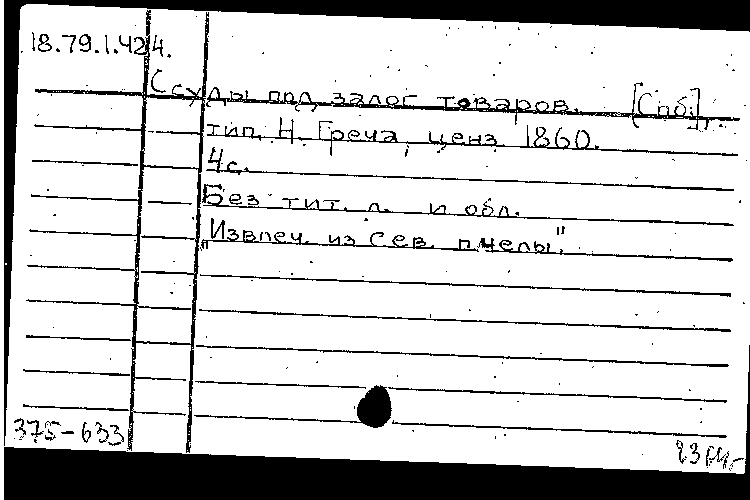 18.79.1.424.
Ссуды под залог товаров. [Спб],
тип. Н. Греча, ценз. 1860.
4с.
Без тит. л. и обл.
"Извлеч. из Сев. пчелы".
375-633